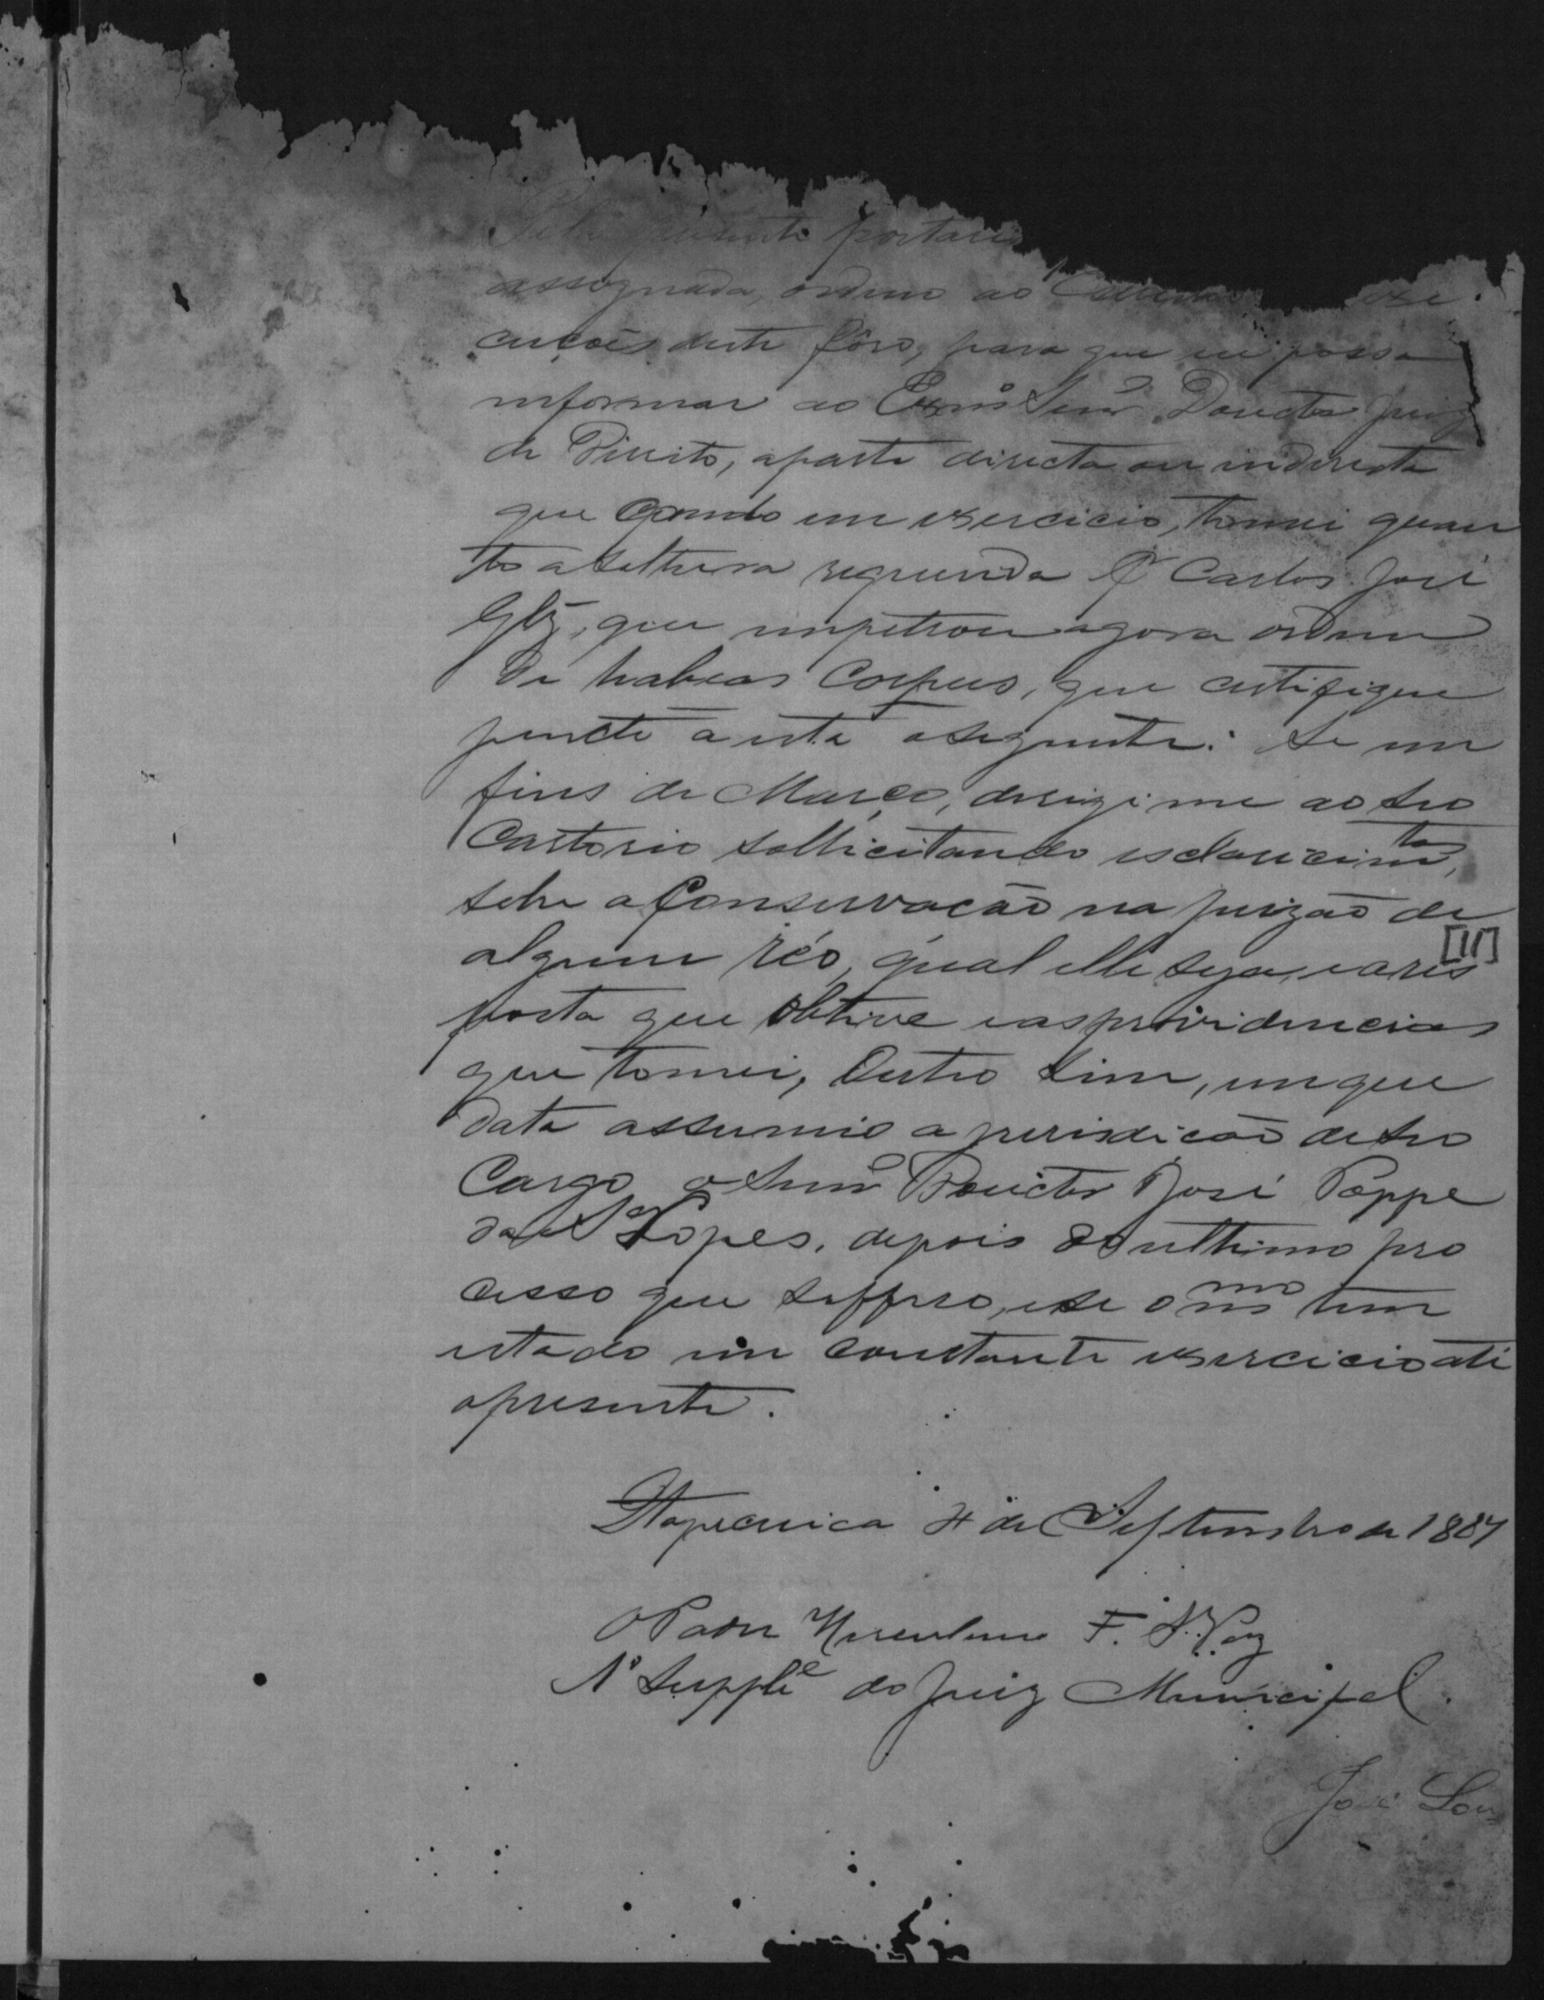 Pela presente portaria
assignada, ordeno ao Escrivão exe-
cuções deste fôro, para que eu possa
informar ao Exmº Senrº Doucto Juiz
de Direito, aparte directa ou indirecta
que quando em exercicio, tomei quan
to a soltura requerida Pr Carlos José
Glz, que impetrou agora ordem
de habeas Corpus, que certifique
juncto a esta o seguinte: Se em
fins de Março, derigi me ao seo
Cartorio sollicitando esclarecimtos,
sobre a Conservacão na prizão de
algum réo, qual elle seja, e a res
[11]
posta que obtive e as providencias
que tomei, Outro sim, em que
data assumio a jurisdicão de seo
Cargo o Senrº Douctor José Poppe
da S Lopes, depois do ultimo pro
cesso que soffreo, e se o mmo tem
estado em constante exercicio até
o presente.
Itapecirica 4 de Septembro de 1887
O Padre Herculano F. S. Paz
1º Supple do Juiz Municipal.
José Lou